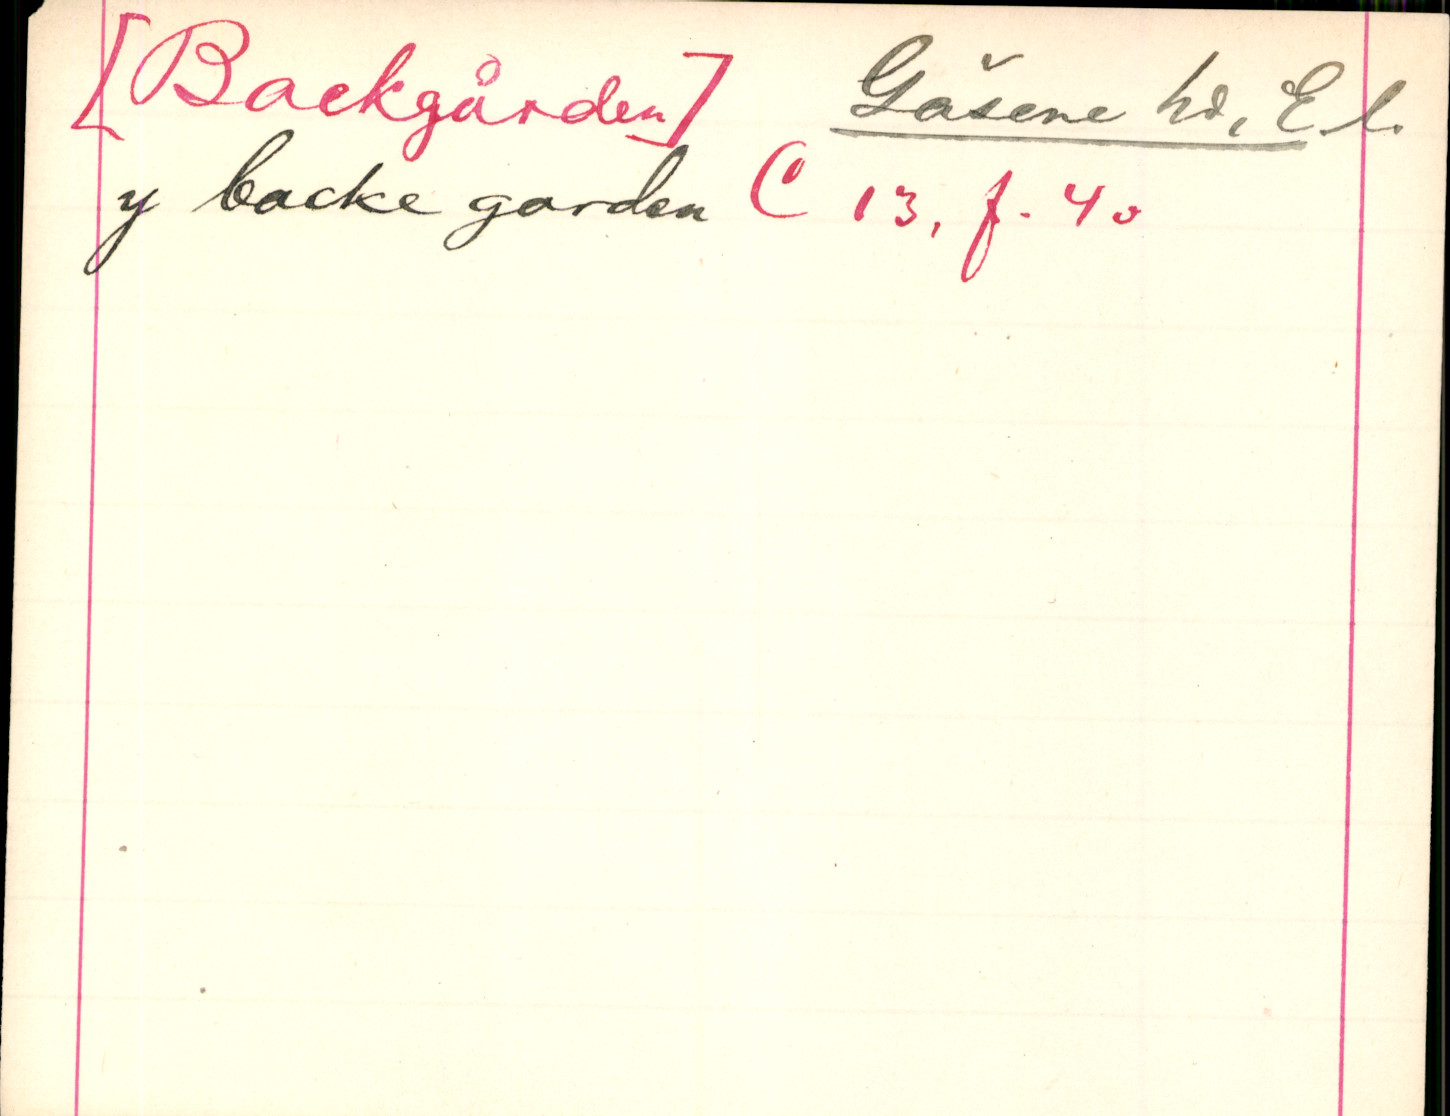 [Backgården] Gäsene hd, E.l.
y backe garden C 13, f. 40